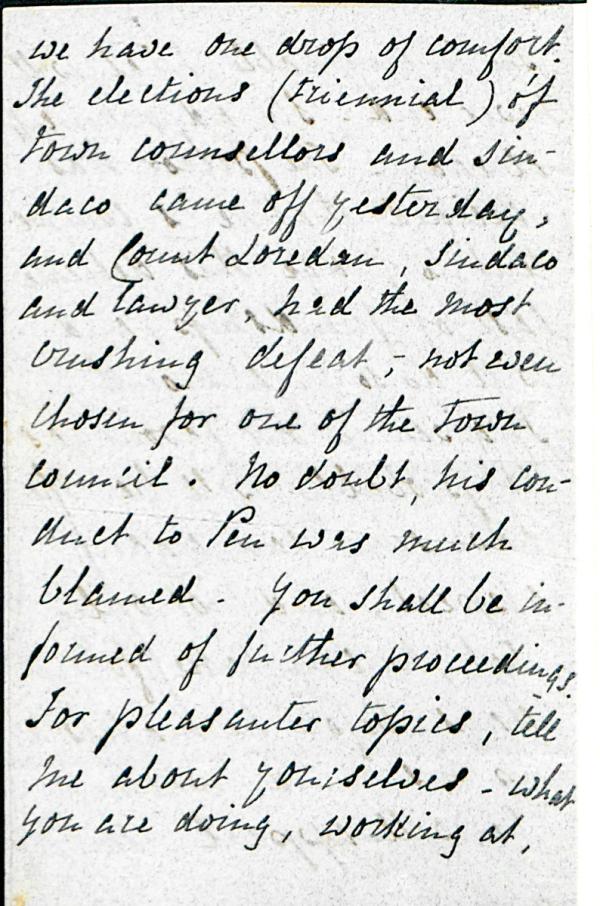 we have one drop of comfort.
The elections (triennial) of
town counsellors and Sin-
daco came off yesterday,
and Count Loredan, Sindaco
and lawyer, had the most
crushing defeat, - not even
chosen for one of the town
council. No doubt, his con-
duct to Pen was much
blamed. You shall be in-
formed of further proceedings.
For pleasanter topics, tell
me about yourselves - what
you are doing, working at,